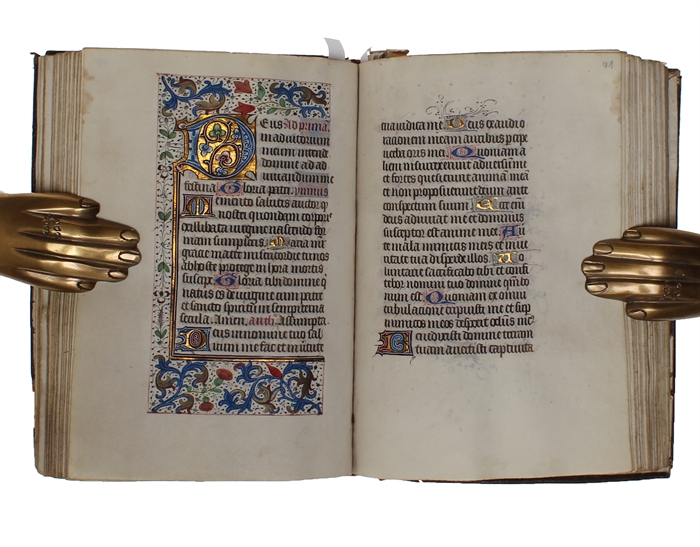 Deus Ad prima.
in adiutorium
meum intende
domine ad ad
iuuandum me
festina Gloria patri ymnus
Memento salutis auctor q
nostri quondam corporis
illibata uirgine nascendo for
mam sumpseris. Maria mr̄
gracie mater misericordie tu nos
ab hoste protege in hora mortis
suscipe Gloria tibi domine q
natus es de uirgine cum patre
et sancto spiritu in sempiterna
secula. Amen. anth. Assumpta
Deus in nomine tuo sal
uum me fac et in uirtute
41
tua iudica me. Deus exaudi o
rationem meam auribus percipe
uerba oris mei. Quoniam a
lieni insurrexerunt aduersum me
et fortes quesierunt animam mea
et non proposuerunt deum ante
conspectum suum. Ecce enim
deus adiuuat me et dominus
susceptor est anime mee. Au
erte mala inimicis meis et in ue
ritate tua disperde illos. Uo
luntarie sacrificabo tibi et confi
tebor nomini tuo domine qm̄ bo
num est. Quoniam ex omni
tribulatione eripuisti me et sup
inimicos meos despexit oculus me
Benedixisti domine terram
tuam auertisti captiuita